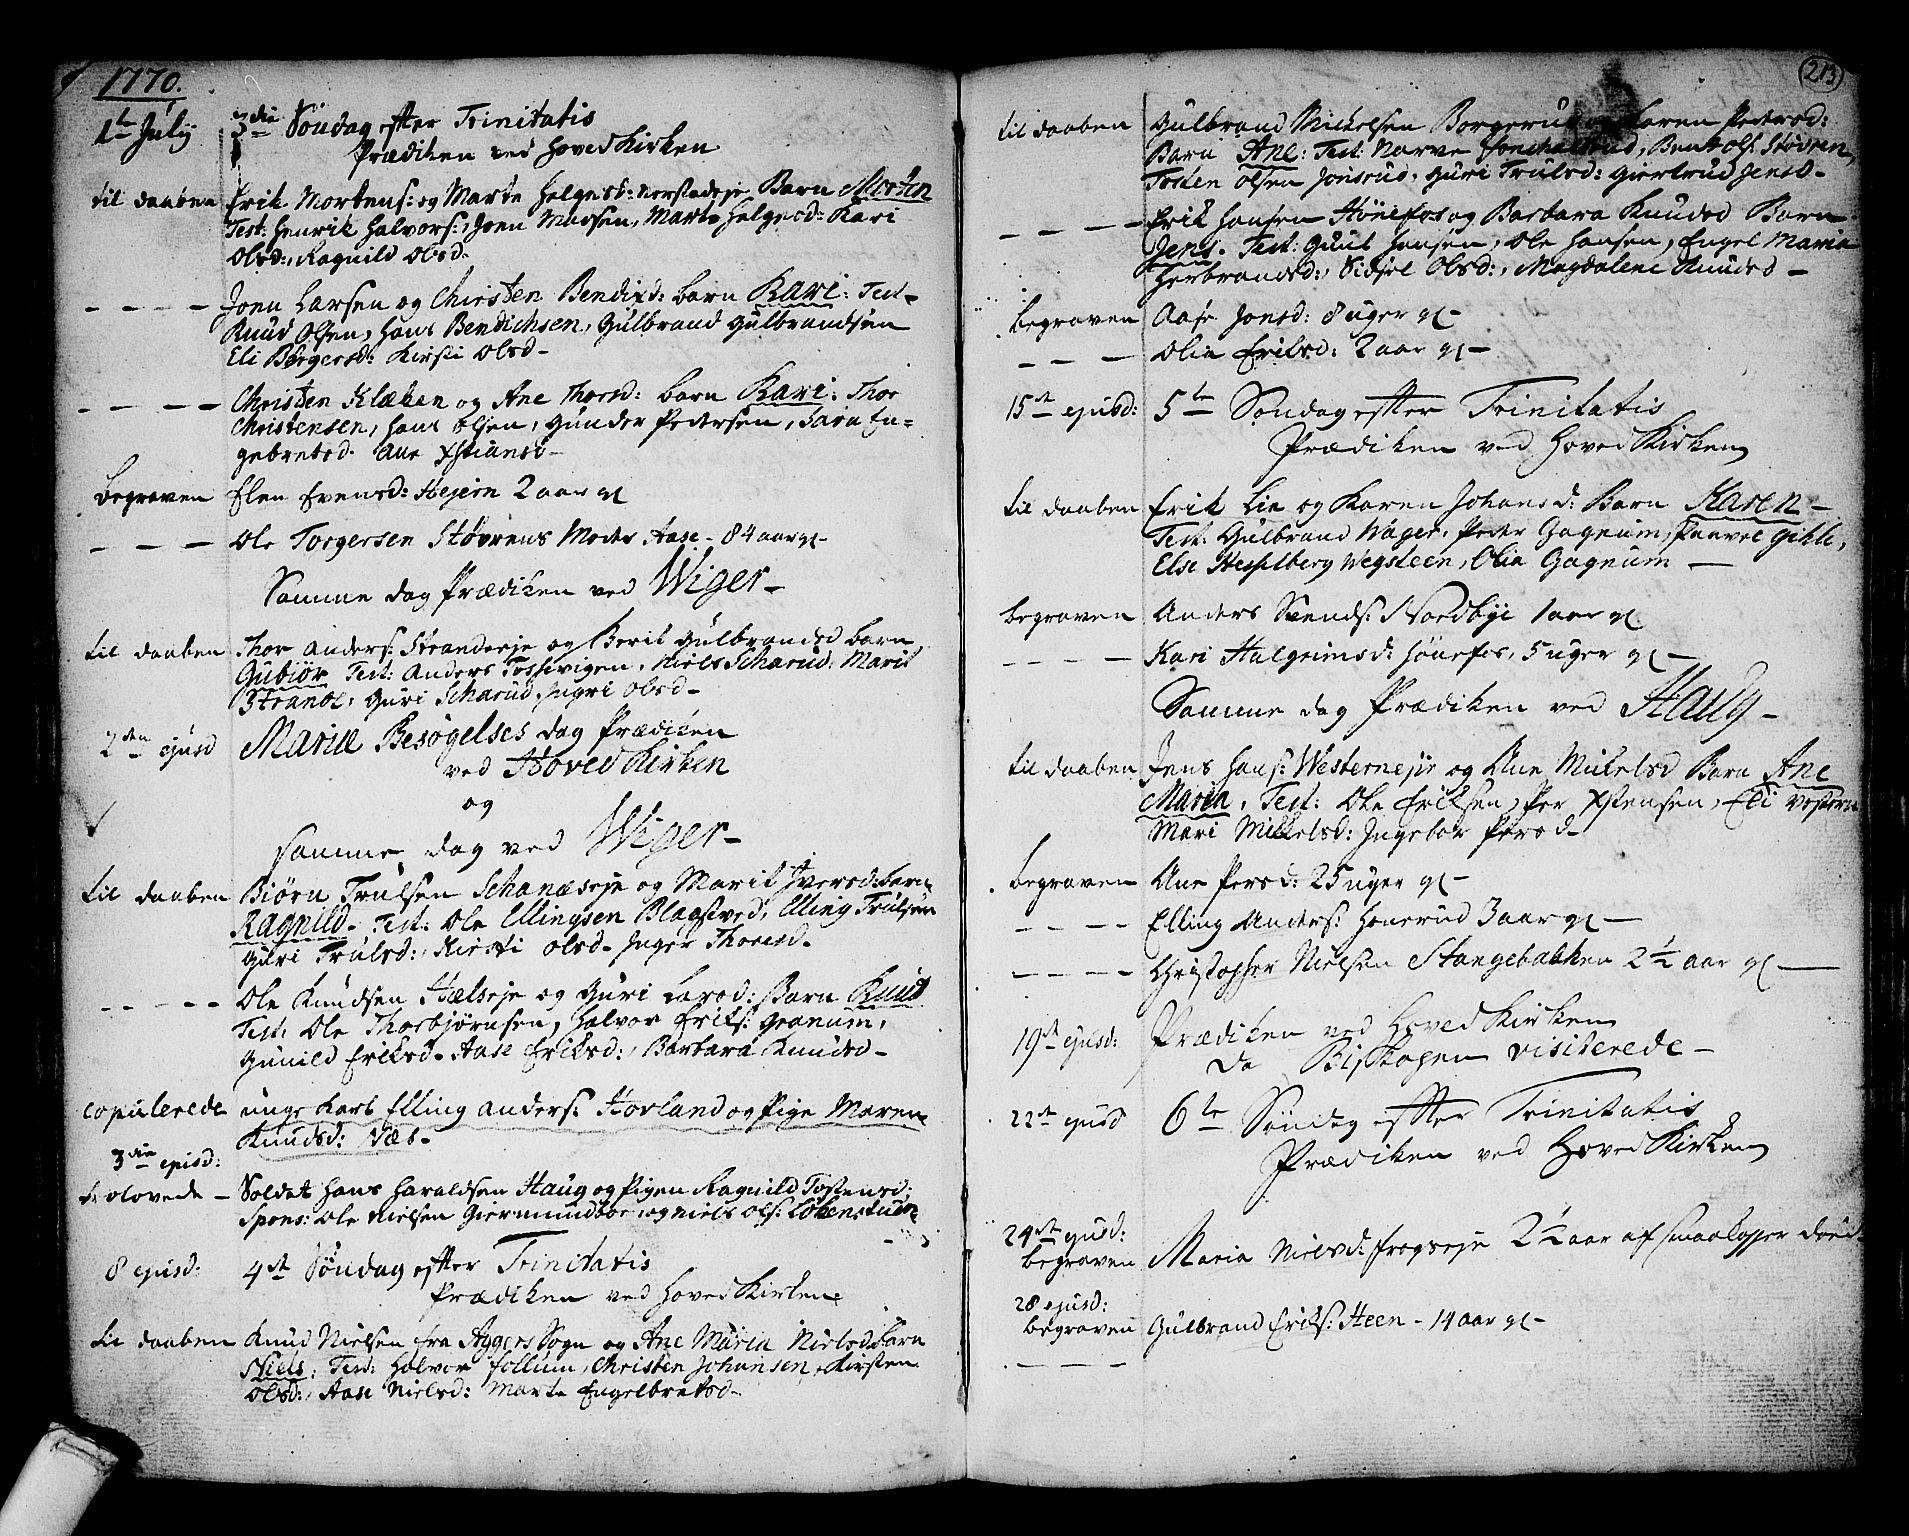 1770.
1te July 3die Søndag efter Trinitatis
Prædiken ved Hoved Kirken
til daaben Erik Mortens: og Marte Helgesd: Barn Morten
Test: Henrik Halvors:, Joen Madsen, Marte Helgesd: Kari
Olsd:, Ragnild Olsd.
- - - - Joen Larsen og Chirsten Bendixd: barn Kari: Test-
Knud Olsen, Hans Bendichsen, Gulbrand Gulbrandsen
Eli Børgersd: Kirsti Olsd-
- - - - Christen Klæken og Ane Thorsd: barn Kari: Thor
Christensen, Hans Olsen, Gunder Pedersen, Sara En=
gebretsd. Ane Xstiansd-
begraven Elen Evensd: Hejern 2 aar gl
- - - Ole Torgersen Støvrens Moder Aase - 84 aar gl-
Samme dag Prædiken ved Wiger-
til daaben Thor Anders: Strandeeje og Berit Gulbrandsd barn
Gubiør Test: Anders Tossevigen, Niels Scharud, Marit
Strand, Guri Scharud, Ingri Olsd-
2den ejusd Mariæ Besøgelses dag Prædiken
ved Hoved Kirken
og
samme dag ved Wiger-
til daaben Biørn Trulsen Schanæseje og Marit Iversd: barn
Ragnild- Test: Ole Ellingsen Blagstved, Elling Trulsen
Guri Trulsd:, Kirsti Olsd- Inger Thoresd-
- - - - Ole Knudsen Hælseje og Guri Larsd: Barn Knud
Test: Ole Thorbjørnsen, Halvor Eriks: Granum,
Gunild Eriksd- Aase Eriksd:, Barbara Knudsd-
copulerede unge Karl Elling Anders: Hovland og Pige Maren
Knudsd: Væs-
3die ejusd:
trolovede - Soldat Hans Haraldsen Haug og Pigen Ragnild Tostensd:
Spons: Ole Nielsen Giermundboe og Niels Ols:
8 ejusd: 4de Søndag efter Trinitatis
Prædiken ved Hoved Kirken
til daaben Knud Nielsen fra Aggers Sogn og Ane Maria Nielsd barn
Niels: Test: Halvor Follum, Christen Johansen, Kirsten
Olsd:, Aase Nielsd: Marte Engelbretsd-
213
til daaben Gulbrand Mickelsen Borgerud og Karen Pedersd:
Barn Ane: Test: Narve Bent Ols: Støvren,
Tosten Olsen Jonsrud, Guri Trulsd: Giertrud Jensd-
- - - - Erik Hansen Hønefos og Barbara Knudsd Barn
Jens. Test: Guul Hansen, Ole Hansen, Engel Maria
Herbrandsd:, Sidsel Olsd:, Magdalene Knudsd -
begraven Aase Jonsd: 8 uger gl-
- - - Olia Eriksd: 2 aar gl-
15de ejusd: 5te Søndag efter Trinitatis
Prædiken ved Hoved Kirken
til daaben Erik Lie og Karen Johansd: Barn Karen-
Test: Gulbrand Wager, Peder Gagnum, Paavel Gihle,
Else Hesselberg Wegsteen, Olia Gagnum -
begraven Anders Svends: Nordbye 1 aar gl.
- - - - Kari Halgrimsd: Hønefos, 5 uger gl-
Samme dag Prædiken ved Haug-
til daaben Jens Hans: Westerneje og Ane Mikelsd Barn Ane
Maria, Test: Ole Eriksen, Per Xstensen, Eli Vestern
Mari Mikkelsd: Ingebor Persd-
begraven Ane Persd: 25 uger gl-
- - - - Elling Anders: Honerud 3 aar gl-
- - - - Christopher Nielsen Stangebakken 2½ aar gl-
19de ejusd: Prædiken ved Hoved Kirken
da Biskopen visiterede-
22de ejusd 6te Søndag efter Trinitatis
Prædiken ved Hoved Kirken
24de ejusd:
begraven Maria Nielsd: Frogseje 2½ aar af smaakopper død
28 ejusd:
begraven Gulbrand Eriks: Heen - 14 aar gl-
- - - -